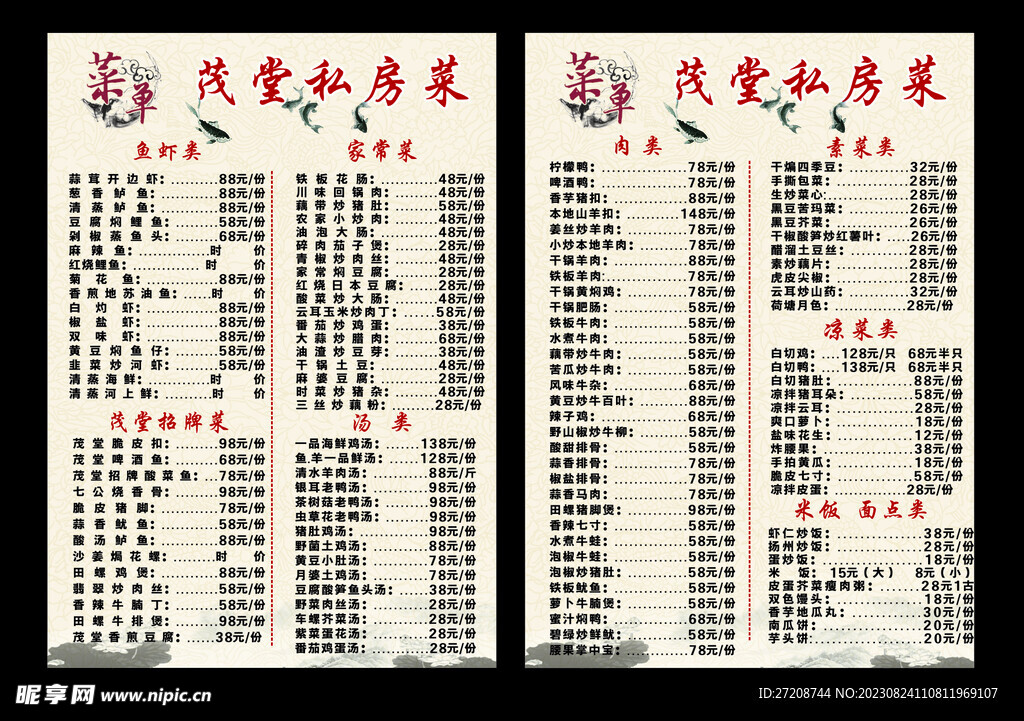 菜单
茂堂私房菜
鱼虾类
蒜茸开边虾：..........88元/份
葱香鲈鱼：..........88元/份
清蒸鲈鱼：..........88元/份
豆腐焖鲤鱼：..........58元/份
剁椒蒸鱼头：..........68元/份
麻辣鱼：..........时 价
红烧鲤鱼：..........时 价
菊花鱼：..........88元/份
香煎地苏油鱼：......时 价
白灼虾：..........88元/份
椒盐虾：..........88元/份
双味虾：..........88元/份
黄豆焖鱼仔：..........58元/份
韭菜炒河虾：..........58元/份
清蒸海鲜：..........时 价
清蒸河上鲜：..........时 价
茂堂招牌菜
茂堂脆皮扣：..........98元/份
茂堂啤酒鱼：..........68元/份
茂堂招牌酸菜鱼：...78元/份
七公烧香骨：..........98元/份
脆皮猪脚：..........78元/份
蒜香鱿鱼：..........58元/份
酸汤鲈鱼：..........88元/份
沙姜焗花螺：..........时 价
田螺鸡煲：..........88元/份
翡翠炒肉丝：..........58元/份
香辣牛腩丁：..........58元/份
田螺牛排煲：..........98元/份
茂堂香煎豆腐：......38元/份
家常菜
铁板花肠：..........48元/份
川味回锅肉：..........48元/份
藕带炒猪肚：..........58元/份
农家小炒肉：..........48元/份
油泡大肠：..........48元/份
碎肉茄子煲：..........28元/份
青椒炒肉丝：..........48元/份
家常焖豆腐：..........28元/份
红烧日本豆腐：......28元/份
酸菜炒大肠：..........48元/份
云耳玉米炒肉丁：......58元/份
番茄炒鸡蛋：..........38元/份
大蒜炒腊肉：..........68元/份
油渣炒豆芽：..........38元/份
干锅土豆：..........48元/份
麻婆豆腐：..........28元/份
时菜炒猪杂：..........48元/份
三丝炒藕粉：........28元/份
汤 类
一品海鲜鸡汤：......138元/份
鱼.羊一品鲜汤：......128元/份
清水羊肉汤：..........88元/斤
银耳老鸭汤：..........98元/份
茶树菇老鸭汤：........98元/份
虫草花老鸭汤：........98元/份
猪肚鸡汤：..........98元/份
野菌土鸡汤：..........88元/份
黄豆小肚汤：..........78元/份
月婆土鸡汤：..........78元/份
豆腐酸笋鱼头汤：......38元/份
野菜肉丝汤：..........28元/份
车螺芥菜汤：..........28元/份
紫菜蛋花汤：..........28元/份
番茄鸡蛋汤：..........28元/份
菜单
茂堂私房菜
肉 类
柠檬鸭：..........78元/份
啤酒鸭：..........78元/份
香芋猪扣：..........88元/份
本地山羊扣：........148元/份
姜丝炒羊肉：..........78元/份
小炒本地羊肉：........78元/份
干锅羊肉：..........88元/份
铁板羊肉:..........78元/份
干锅黄焖鸡：..........78元/份
干锅肥肠：..........58元/份
铁板牛肉：..........58元/份
水煮牛肉：..........58元/份
藕带炒牛肉：..........58元/份
苦瓜炒牛肉：..........58元/份
风味牛杂：..........68元/份
黄豆炒牛百叶：........88元/份
辣子鸡：..........68元/份
野山椒炒牛柳：........58元/份
酸甜排骨：..........58元/份
蒜香排骨：..........78元/份
椒盐排骨：..........78元/份
蒜香马肉：..........78元/份
田螺猪脚煲：..........98元/份
香辣七寸：..........58元/份
水煮牛蛙：..........58元/份
泡椒牛蛙：..........58元/份
泡椒炒猪肚：..........58元/份
铁板鱿鱼：..........58元/份
萝卜牛腩煲：..........58元/份
蜜汁焖鸭：..........68元/份
碧绿炒鲜鱿：..........58元/份
腰果掌中宝：..........78元/份
素菜类
干煸四季豆：..........32元/份
手撕包菜：..........28元/份
生炒菜心:..........28元/份
黑豆苦玛菜：..........26元/份
黑豆芥菜：..........26元/份
干椒酸笋炒红薯叶：....26元/份
醋溜土豆丝：..........28元/份
素炒藕片：..........28元/份
虎皮尖椒：..........28元/份
云耳炒山药：..........32元/份
荷塘月色：..........28元/份
凉菜类
白切鸡：....128元/只 68元半只
白切鸭：....138元/只 68元半只
白切猪肚：..........88元/份
凉拌猪耳朵：..........58元/份
凉拌云耳：..........28元/份
爽口萝卜：..........18元/份
盐味花生：..........12元/份
炸腰果：..........38元/份
手拍黄瓜：..........18元/份
脆皮七寸：..........58元/份
凉拌皮蛋：..........28元/份
米饭 面点类
虾仁炒饭：..........38元/份
扬州炒饭：..........28元/份
蛋炒饭：..........18元/份
米 饭：15元（大） 8元（小）
皮蛋芥菜瘦肉粥：......28元1古
双色馒头：..........18元/份
香芋地瓜丸：..........30元/份
南瓜饼：..........20元/份
芋头饼：..........20元/份
昵享网 www.nipic.cn
ID:27208744 NO:20230824110811969107